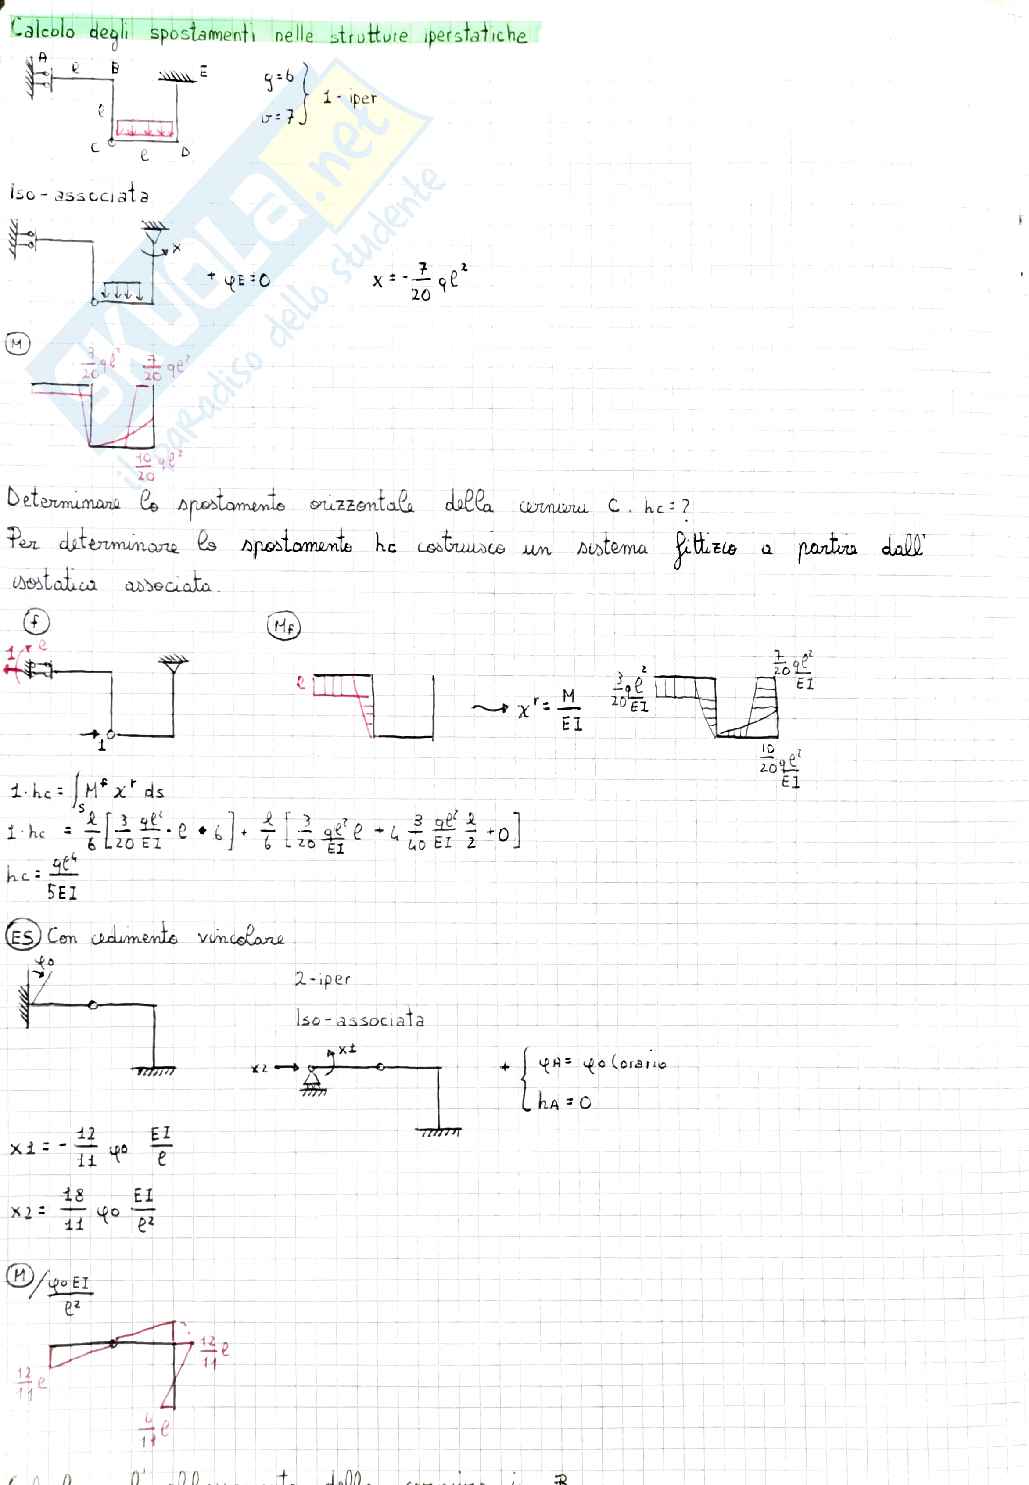 Calcolo degli spostamenti nelle strutture iperstatiche
A
l
B
E
g=6
v=7
1-iper
l
C
l
D
Iso-associata
x
+ φE=0
x = -7/20 ql²
M
3/20 ql²
7/20 ql²
10/20 ql²
SKUOLA.net
il paradiso dello studente
Determinare lo spostamento orizzontale della cerniera C. hc=?
Per determinare lo spostamento hc costruisco un sistema fittizio a partire dall'
isostatica associata.
f
Mf
1
l
1
l
χʳ = M/EI
3/20 ql²/EI
7/20 ql²/EI
10/20 ql²/EI
1·hc = ∫s Mᶠ χʳ ds
1·hc = l/6 [3/20 ql²/EI · l · 6] + l/6 [3/20 ql²/EI l + 4 3/40 ql²/EI l/2 + 0]
hc = ql⁴/5EI
ES Con cedimento vincolare
φ0
2-iper
Iso-associata
x2
x1
+ { φA = φ0 (orario
hA = 0
x1 = -12/11 φ0 EI/l
x2 = 18/11 φ0 EI/l²
M / φ0EI/l²
12/11 l
12/11 l